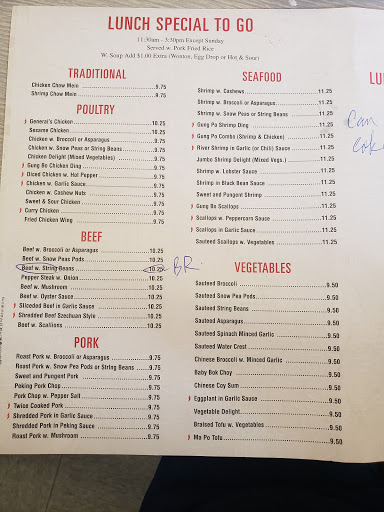 LUNCH SPECIAL TO GO
11:30am - 3:30pm Except Sunday
Served w. Pork Fried Rice
W. Soup Add $1.00 Extra (Wonton, Egg Drop or Hot & Sour)
TRADITIONAL
Chicken Chow Mein 9.75
Shrimp Chow Mein 9.75
POULTRY
General's Chicken 10.25
Sesame Chicken 10.25
Chicken w. Broccoli or Asparagus 9.75
Chicken w. Snow Peas or String Beans 9.75
Chicken Delight (Mixed Vegetables) 9.75
Gung Bo Chicken Ding 9.75
Diced Chicken w. Hot Pepper 9.75
Chicken w. Garlic Sauce 9.75
Chicken w. Cashew Nuts 9.75
Sweet & Sour Chicken 9.75
Curry Chicken 9.75
Fried Chicken Wing 9.75
BEEF
Beef w. Broccoli or Asparagus 10.25
Beef w. Snow Peas Pods 10.25
Beef w. String Beans 10.25 BR
Pepper Steak w. Onion 10.25
Beef w. Mushroom 10.25
Beef w. Oyster Sauce 10.25
Sliceded Beef in Garlic Sauce 10.25
Shredded Beef Szechuan Style 10.25
Beef w. Scallions 10.25
PORK
Roast Pork w. Broccoli or Asparagus 9.75
Roast Pork w. Snow Pea Pods or String Beans 9.75
Sweet and Pungent Pork 9.75
Peking Pork Chop 9.75
Pork Chop w. Pepper Salt 9.75
Twice Cooked Pork 9.75
Shredded Pork in Garlic Sauce 9.75
Shredded Pork in Peking Sauce 9.75
Roast Pork w. Mushroom 9.75
SEAFOOD
Shrimp w. Cashews 11.25
Shrimp w. Broccoli or Asparagus 11.25
Shrimp w. Snow Peas or String Beans 11.25
Gung Po Shrimp Ding 11.25
Gung Po Combo (Shrimp & Chicken) 11.25
River Shrimp in Garlic (or Chili) Sauce 11.25
Jumbo Shrimp Delight (Mixed Vegs.) 11.25
Shrimp w. Lobster Sauce 11.25
Shrimp in Black Bean Sauce 11.25
Sweet and Pungent Shrimp 11.25
Gung Bo Scallops 11.25
Scallops w. Peppercorn Sauce 11.25
Scallops in Garlic Sauce 11.25
Sauteed Scallops w. Vegetables 11.25
VEGETABLES
Sauteed Broccoli 9.50
Sauteed Snow Pea Pods 9.50
Sauteed String Beans 9.50
Sauteed Asparagus 9.50
Sauteed Spinach Minced Garlic 9.50
Sauteed Water Crest 9.50
Chinese Broccoli w. Minced Garlic 9.50
Baby Bok Choy 9.50
Chinese Coy Sum 9.50
Eggplant in Garlic Sauce 9.50
Vegetable Delight 9.50
Braised Tofu w. Vegetables 9.50
Ma Po Tofu 9.50
LU
Can